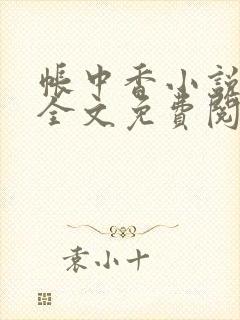 帳中香小説
全文免費閱
袁小十